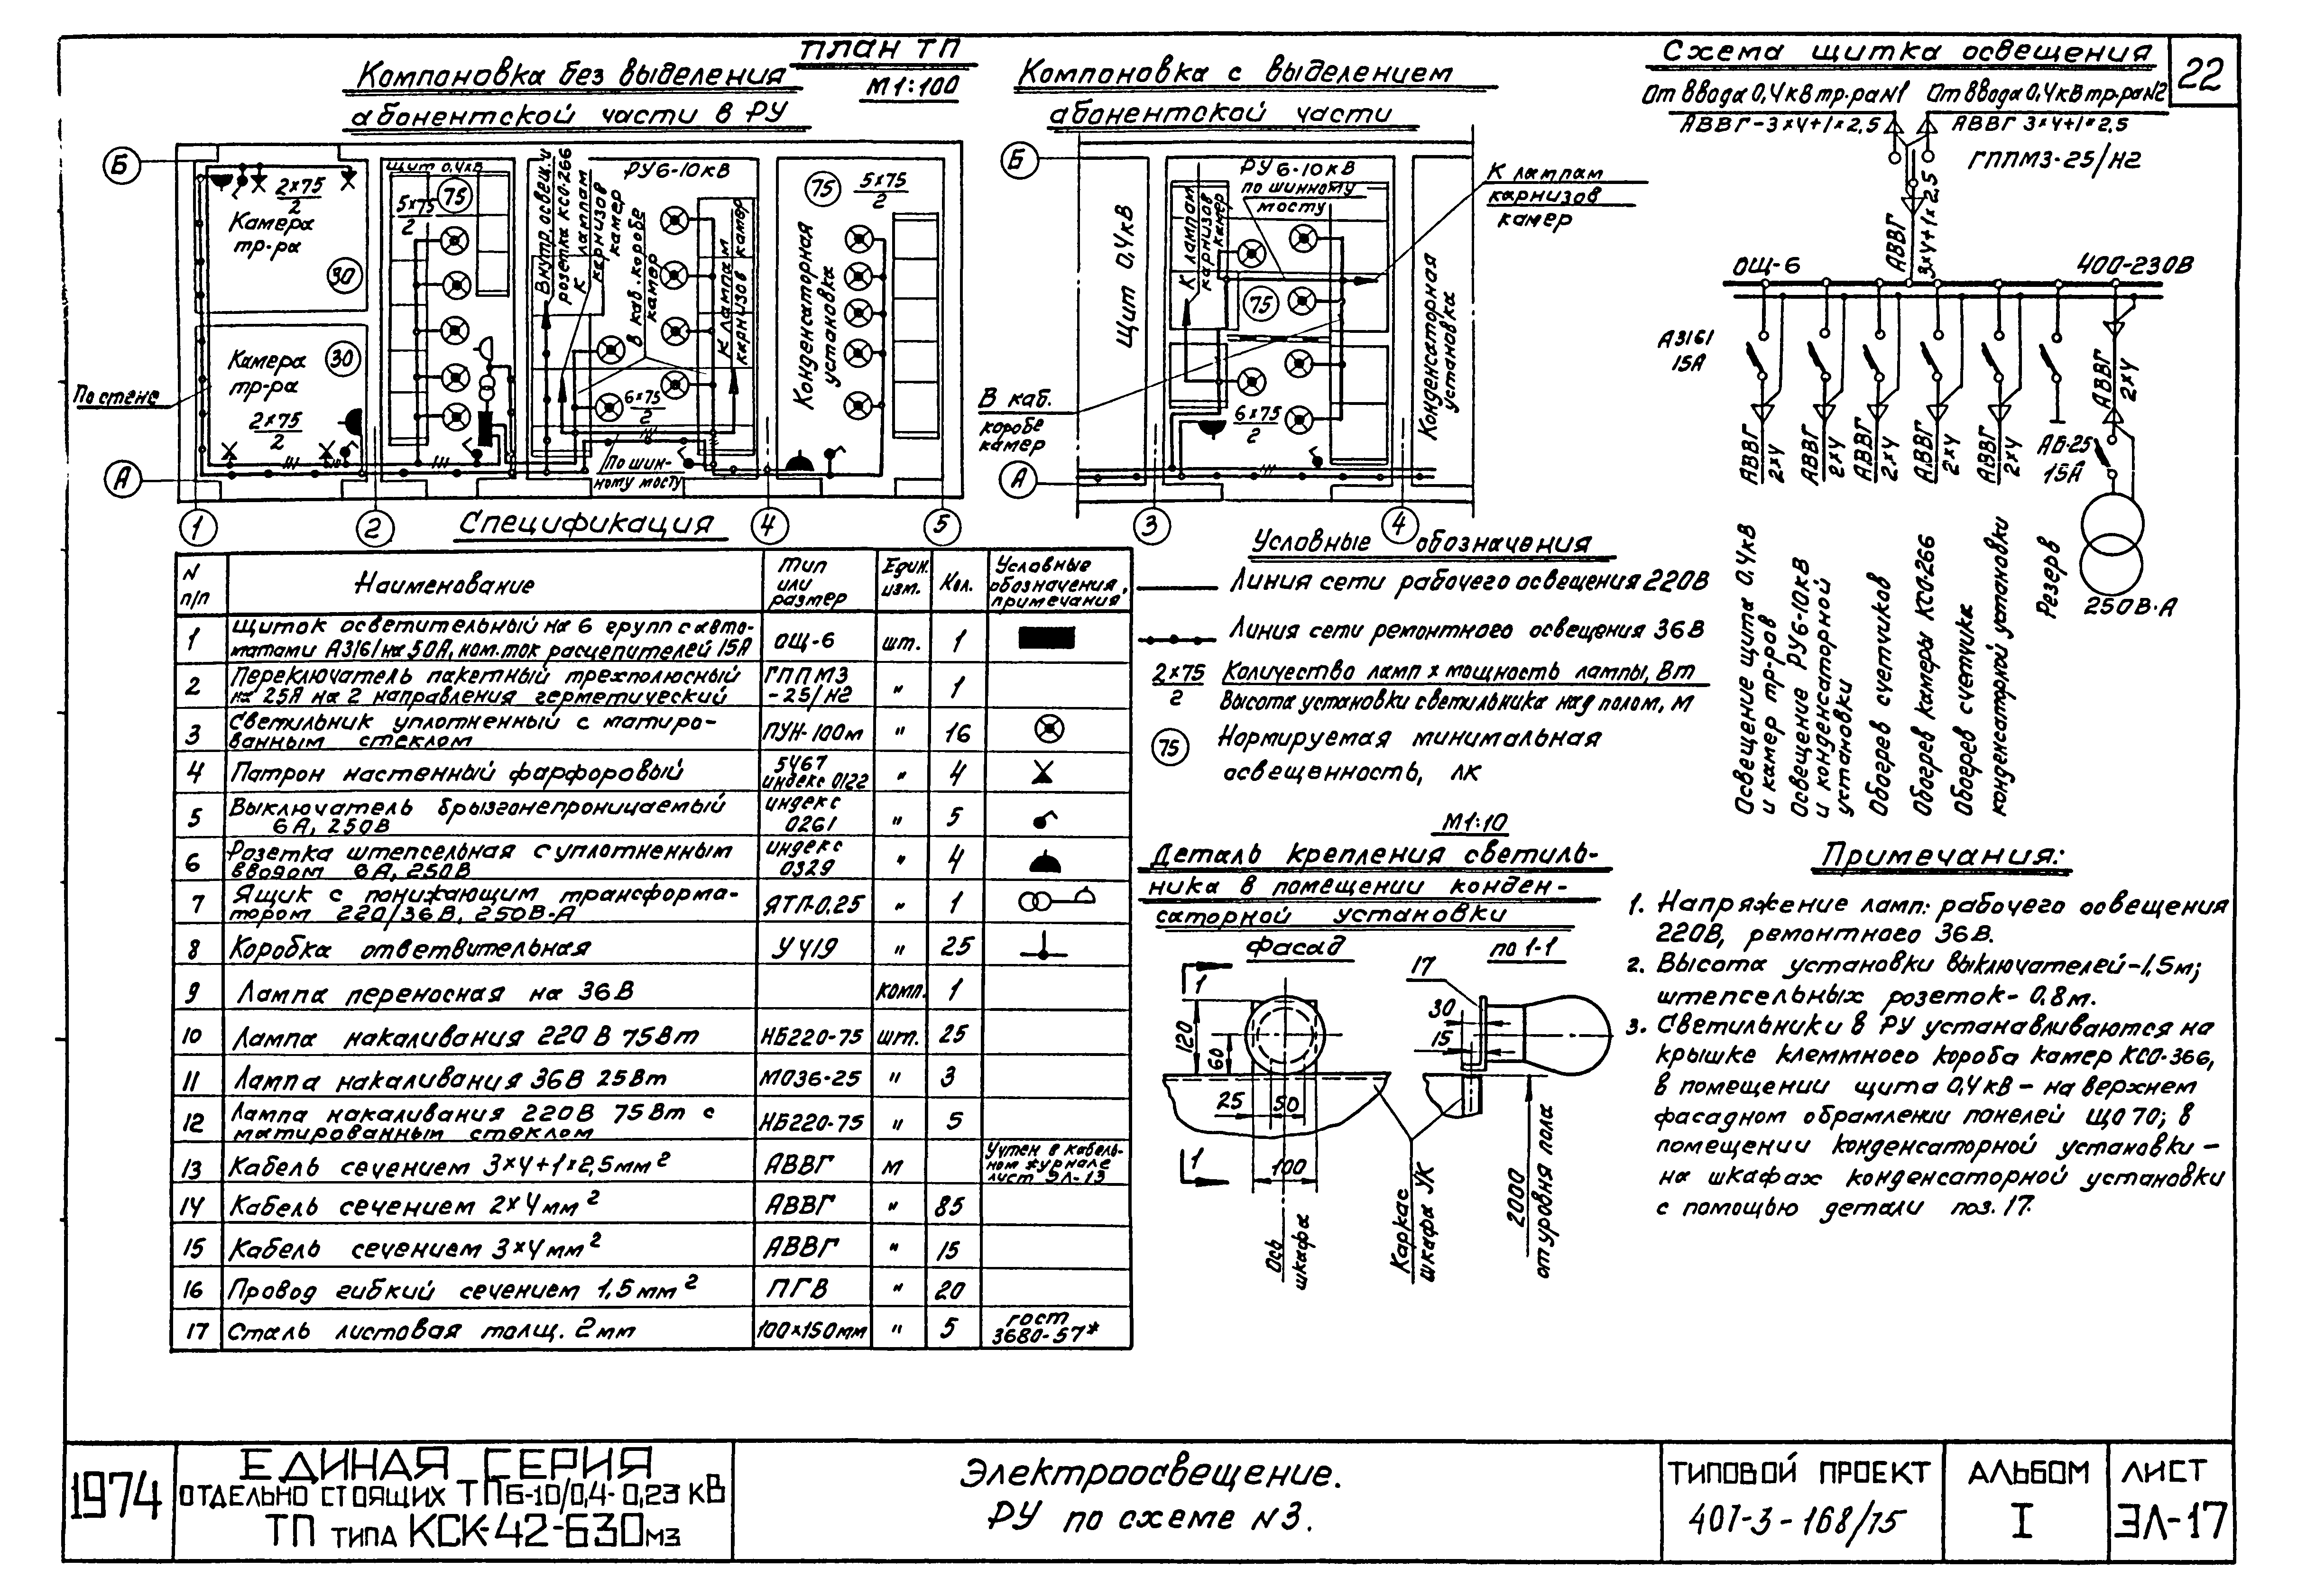 план ТП
М1:100
Компоновка без выделения
абонентской части в РУ
Компоновка с выделением
абонентской части
Схема щитка освещения
22
От ввода 0,4кв тр-ра N1
От ввода 0,4кв тр-ра N2
АВВГ-3×4+1×2,5
АВВГ 3×4+1×2,5
ГППМ3-25/Н2
АВВГ
3×4+1×2,5
ОЩ-6
400-230В
А3161
15А
АВВГ
2×4
АВВГ
2×4
АВВГ
2×4
АВВГ
2×4
АВВГ
2×4
АВВГ
2×4
АБ-25
15А
250В·А
Освещение щита 0,4кв
и камер тр-ров
Освещение РУ6-10кВ
и конденсаторной
установки
Обогрев счетчиков
Обогрев камеры КСО-266
Обогрев счетчика
конденсаторной установки
Резерв
Б
А
1
2
4
5
2×75
2
Камера
тр-ра
30
Камера
тр-ра
30
2×75
2
По стене
Щит 0,4кВ
5×75
2
75
Внутр. освещ. и
розетка КСО-266
К лампам
карнизов
камер
РУ6-10кВ
в каб. коробе
камер
К лампам
карнизов камер
6×75
2
По шин-
ному мосту
75
5×75
2
Конденсаторная
установка
Б
А
3
4
Щит 0,4кВ
К лампам
карнизов
камер
РУ6-10кВ
по шинному
мосту
75
6×75
2
К лампам
карнизов
камер
В каб.
коробе
камер
Конденсаторная
установка
Спецификация
N п/п Наименование Тип или размер Един. изм. Кол. Условные обозначения, примечания
1 Щиток осветительный на 6 групп с авто-
матами А3161 на 50А, ном. ток расцепителей 15А ОЩ-6 шт. 1
2 Переключатель пакетный трехполюсный
на 25А на 2 направления герметический ГППМ3-25/Н2 " 1
3 Светильник уплотненный с матиро-
ванным стеклом ПУН-100м " 16
4 Патрон настенный фарфоровый 5467 индекс 0122 " 4
5 Выключатель брызгонепроницаемый
6А, 250В индекс 0261 " 5
6 Розетка штепсельная с уплотненным
вводом 6А, 250В индекс 0329 " 4
7 Ящик с понижающим трансформа-
тором 220/36В, 250В·А ЯТП-0,25 " 1
8 Коробка ответвительная У419 " 25
9 Лампа переносная на 36В комп. 1
10 Лампа накаливания 220В 75Вт НБ220-75 шт. 25
11 Лампа накаливания 36В 25Вт МО36-25 " 3
12 Лампа накаливания 220В 75Вт с
матированным стеклом НБ220-75 " 5
13 Кабель сечением 3×4+1×2,5мм² АВВГ м Учтен в кабель-
ном журнале
лист ЭЛ-13
14 Кабель сечением 2×4мм² АВВГ " 85
15 Кабель сечением 3×4мм² АВВГ " 15
16 Провод гибкий сечением 1,5мм² ПГВ " 20
17 Сталь листовая толщ. 2мм 100×150мм " 5 гост 3680-57*
Условные обозначения
Линия сети рабочего освещения 220В
Линия сети ремонтного освещения 36В
2×75 Количество ламп × мощность лампы, Вт
2 Высота установки светильника над полом, м
75 Нормируемая минимальная
освещенность, лк
М1:10
Деталь крепления светиль-
ника в помещении конден-
саторной установки
фасад
по 1-1
1
1
120
60
25
50
100
Ось
шкафа
17
30
15
Каркас
шкафа УК
2000
от уровня пола
Примечания:
1. Напряжение ламп: рабочего освещения
220В, ремонтного 36В.
2. Высота установки выключателей-1,5м;
штепсельных розеток- 0,8м.
3. Светильники в РУ устанавливаются на
крышке клеммного короба камер КСО-366,
в помещении щита 0,4кВ - на верхнем
фасадном обрамлении панелей ЩО70; в
помещении конденсаторной установки -
на шкафах конденсаторной установки
с помощью детали поз. 17.
1974
ЕДИНАЯ СЕРИЯ
ОТДЕЛЬНО СТОЯЩИХ ТП 6-10/0,4-0,23 кВ
ТП типа КСК-42-630м3
Электроосвещение.
РУ по схеме N3.
ТИПОВОЙ ПРОЕКТ
407-3-168/75
АЛЬБОМ
I
ЛИСТ
ЭЛ-17